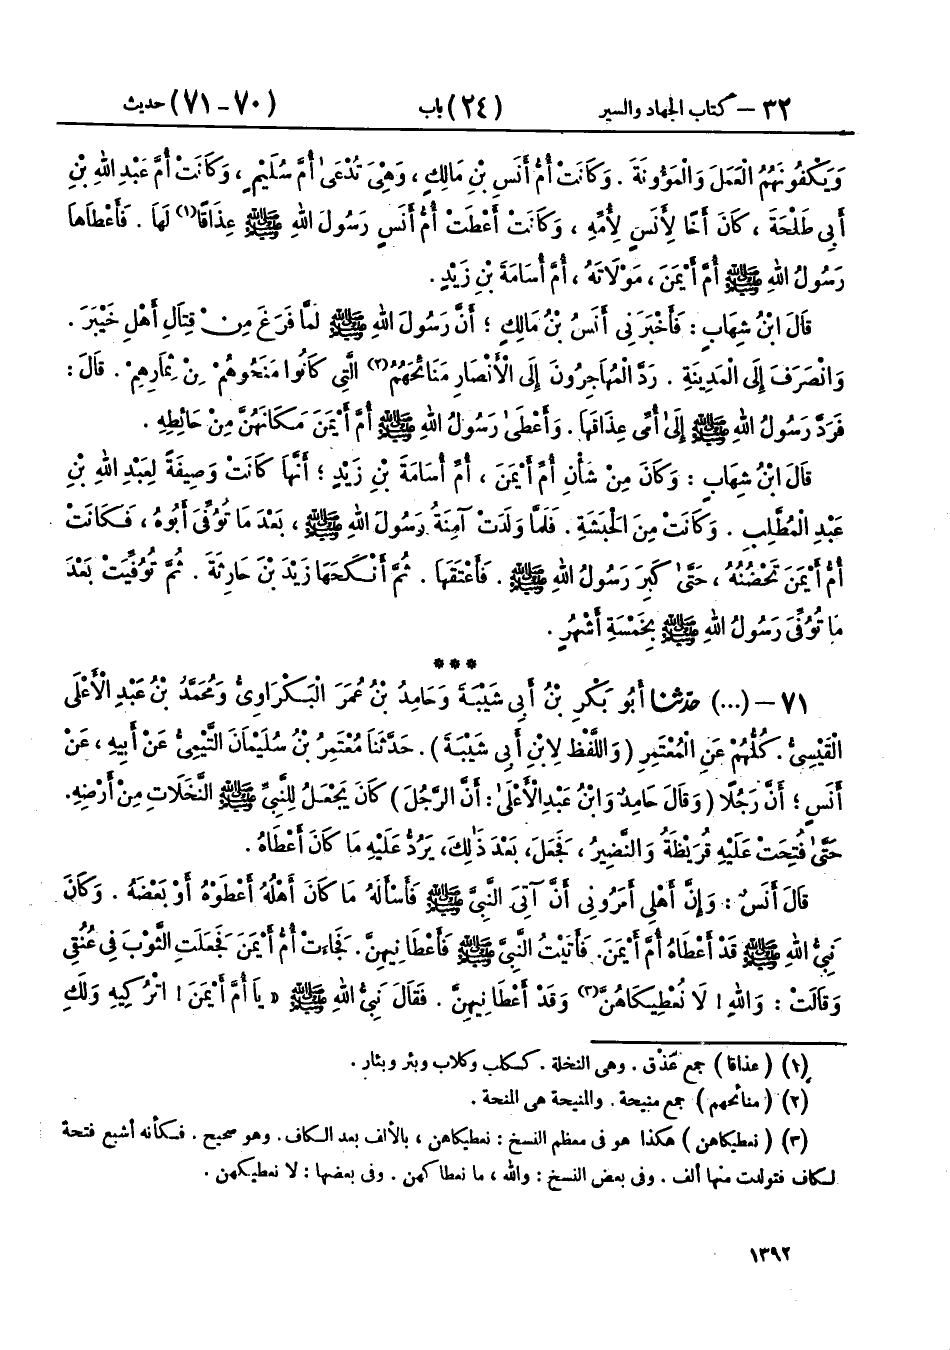 ٣٢ – كتاب الجهاد والسير (٢٤) باب (٧٠ – ٧١) حديث
وَيَكْفُونَهُمُ الْعَمَلَ وَالْمَؤُونَةَ . وَكَانَتْ أُمُّ أَنَسِ بْنِ مَالِكٍ ، وَهْىَ تُدْعَىٰ أُمَّ سُلَيْمٍ ، وَكَانَتْ أُمَّ عَبْدِ اللهِ بْنِ
أَبِي طَلْحَةَ ، كَانَ أَخًا لِأَنَسٍ لِأُمِّهِ ، وَكَانَتْ أَعْطَتْ أُمُّ أَنَسٍ رَسُولَ اللهِ ﷺ عِذَاقًا(١) لَهَا . فَأَعْطَاهَا
رَسُولُ اللهِ ﷺ أُمَّ أَيْمَنَ ، مَوْلَاتَهُ ، أُمَّ أُسَامَةَ بْنِ زَيْدٍ .
قَالَ ابْنُ شِهَابٍ : فَأَخْبَرَنِى أَنَسُ بْنُ مَالِكٍ ؛ أَنَّ رَسُولَ اللهِ ﷺ لَمَّا فَرَغَ مِنْ قِتَالِ أَهْلِ خَيْبَرَ .
وَانْصَرَفَ إِلَى الْمَدِينَةِ . رَدَّ الْمُهَاجِرُونَ إِلَى الْأَنْصَارِ مَنَائِحَهُمُ(٢) الَّتِي كَانُوا مَنَحُوهُمْ مِنْ ثِمَارِهِمْ . قَالَ :
فَرَدَّ رَسُولُ اللهِ ﷺ إِلَىٰ أُمِّى عِذَاقَهَا . وَأَعْطَىٰ رَسُولُ اللهِ ﷺ أُمَّ أَيْمَنَ مَكَانَهُنَّ مِنْ حَائِطِهِ .
قَالَ ابْنُ شِهَابٍ : وَكَانَ مِنْ شَأْنِ أُمِّ أَيْمَنَ ، أُمِّ أُسَامَةَ بْنِ زَيْدٍ ؛ أَنَّهَا كَانَتْ وَصِيفَةً لِعَبْدِ اللهِ بْنِ
عَبْدِ الْمُطَّلِبِ . وَكَانَتْ مِنَ الْحَبَشَةِ . فَلَمَّا وَلَدَتْ آمِنَةُ رَسُولَ اللهِ ﷺ ، بَعْدَ مَا تُوُفِّىَ أَبُوهُ ، فَكَانَتْ
أُمُّ أَيْمَنَ تَحْضُنُهُ ، حَتَّىٰ كَبِرَ رَسُولُ اللهِ ﷺ . فَأَعْتَقَهَا . ثُمَّ أَنْكَحَهَا زَيْدَ بْنَ حَارِثَةَ . ثُمَّ تُوُفِّيَتْ بَعْدَ
مَا تُوُفِّىَ رَسُولُ اللهِ ﷺ بِخَمْسَةِ أَشْهُرٍ .
***
٧١ – (...) حدّثنا أَبُو بَكْرِ بْنُ أَبِي شَيْبَةَ وَحَامِدُ بْنُ عُمَرَ الْبَكْرَاوِىُّ وَمُحَمَّدُ بْنُ عَبْدِ الْأَعْلَى
الْقَيْسِىُّ . كُلُّهُمْ عَنِ الْمُعْتَمِرِ (وَاللَّفْظُ لِابْنِ أَبِي شَيْبَةَ) . حَدَّثَنَا مُعْتَمِرُ بْنُ سُلَيْمَانَ التَّيْمِىُّ عَنْ أَبِيهِ ، عَنْ
أَنَسٍ ؛ أَنَّ رَجُلًا (وَقَالَ حَامِدٌ وَابْنُ عَبْدِ الْأَعْلَىٰ : أَنَّ الرَّجُلَ) كَانَ يَجْعَلُ لِلنَّبِيِّ ﷺ النَّخَلَاتِ مِنْ أَرْضِهِ.
حَتَّىٰ فُتِحَتْ عَلَيْهِ قُرَيْظَةُ وَالنَّضِيرُ ، فَجَعَلَ، بَعْدَ ذَٰلِكَ، يَرُدُّ عَلَيْهِ مَا كَانَ أَعْطَاهُ .
قَالَ أَنَسٌ : وَإِنَّ أَهْلِي أَمَرُونِي أَنْ آتِىَ النَّبِيَّ ﷺ فَأَسْأَلَهُ مَا كَانَ أَهْلُهُ أَعْطَوْهُ أَوْ بَعْضَهُ . وَكَانَ
نَبِيُّ اللهِ ﷺ قَدْ أَعْطَاهُ أُمَّ أَيْمَنَ. فَأَتَيْتُ النَّبِيَّ ﷺ فَأَعْطَانِيهِنَّ . فَجَاءَتْ أُمُّ أَيْمَنَ فَجَعَلَتِ الثَّوْبَ فِى عُنُقِى
وَقَالَتْ : وَاللهِ ! لَا نُعْطِيكَاهُنَّ(٣) وَقَدْ أَعْطَانِيهِنَّ . فَقَالَ نَبِيُّ اللهِ ﷺ « يَا أُمَّ أَيْمَنَ ! اتْرُكِيهِ وَلَكِ
(١) (عذاقا) جمع عَذْق . وهى النخلة . ككلب وكلاب وبئر وبئار .
(٢) (منائحهم) جمع منيحة . والمنيحة هى المنحة .
(٣) (نعطيكاهن) هكذا هو فى معظم النسخ : نعطيكاهن ، بالألف بعد الكاف. وهو صحيح . فكأنه أشبع فتحة
لكاف فتولدت منها ألف . وفى بعض النسخ : والله ، ما نعطا كهن . وفى بعضها : لا نعطيكهن .
١٣٩٢